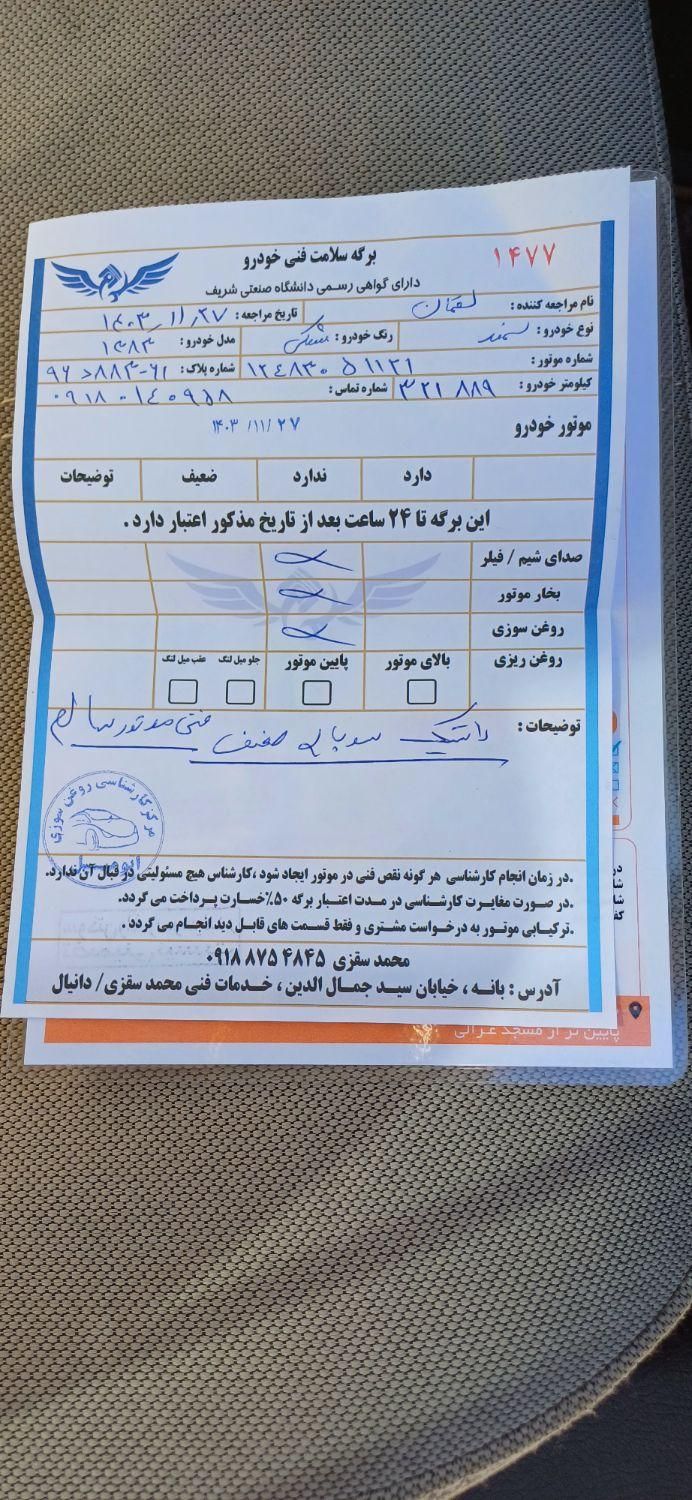 ۱۴۷۷
برگه سلامت فنی خودرو
دارای گواهی رسمی دانشگاه صنعتی شریف
نام مراجعه کننده : لقمان تاریخ مراجعه : ۱۴۰۳/۱۱/۲۷
نوع خودرو : سمند رنگ خودرو : مشکی مدل خودرو : ۱۳۸۳
شماره موتور : ۱۲۴۸۳۰۵۱۱۲۱ شماره پلاک :
کیلومتر خودرو : ۳۲۱۸۸۹ شماره تماس : ۰۹۱۸۰۱۴۰۹۵۸
موتور خودرو ۱۴۰۳/۱۱/۲۷
دارد ندارد ضعیف توضیحات
این برگه تا ۲۴ ساعت بعد از تاریخ مذکور اعتبار دارد .
صدای شیم / فیلر
بخار موتور
روغن سوزی
روغن ریزی بالای موتور پایین موتور جلو میل لنگ عقب میل لنگ
توضیحات : لاستیک سوپاپ ضعیف فنی موتور سالم
مرکز کارشناسی روغن سوزی
.در زمان انجام کارشناسی هر گونه نقص فنی در موتور ایجاد شود ،کارشناس هیچ مسئولیتی در قبال آن ندارد.
.در صورت مغایرت کارشناسی در مدت اعتبار برگه ۵۰٪خسارت پرداخت می گردد.
.ترکیابی موتور به درخواست مشتری و فقط قسمت های قابل دید انجام می گردد .
محمد سقزی ۴۸۴۵ ۸۷۵ ۰۹۱۸
آدرس : بانه ، خیابان سید جمال الدین ، خدمات فنی محمد سقزی/ دانیال
پایین تر از مسجد غزالی